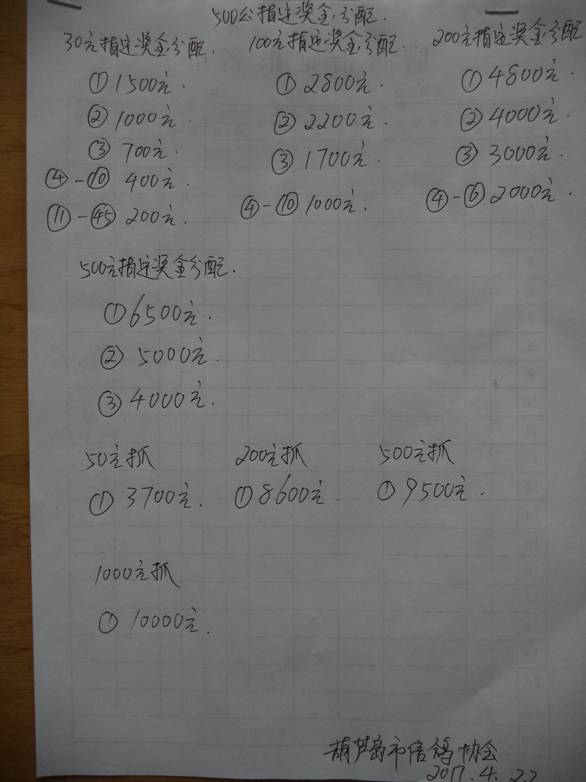 500公指定奖金分配.
30元指定奖金分配 100元指定奖金分配. 200元指定奖金分配
① 1500元. ① 2800元. ① 4800元.
② 1000元. ② 2200元. ② 4000元.
③ 700元. ③ 1700元. ③ 3000元.
④-⑩ 400元
⑪-㊺ 200元. ④-⑩ 1000元. ④-⑥ 2000元.
500元指定奖金分配.
① 6500元.
② 5000元.
③ 4000元.
50元抓 200元抓 500元抓
① 3700元. ① 8600元. ① 9500元.
1000元抓
① 10000元.
葫芦岛市信鸽协会
2017.4.22